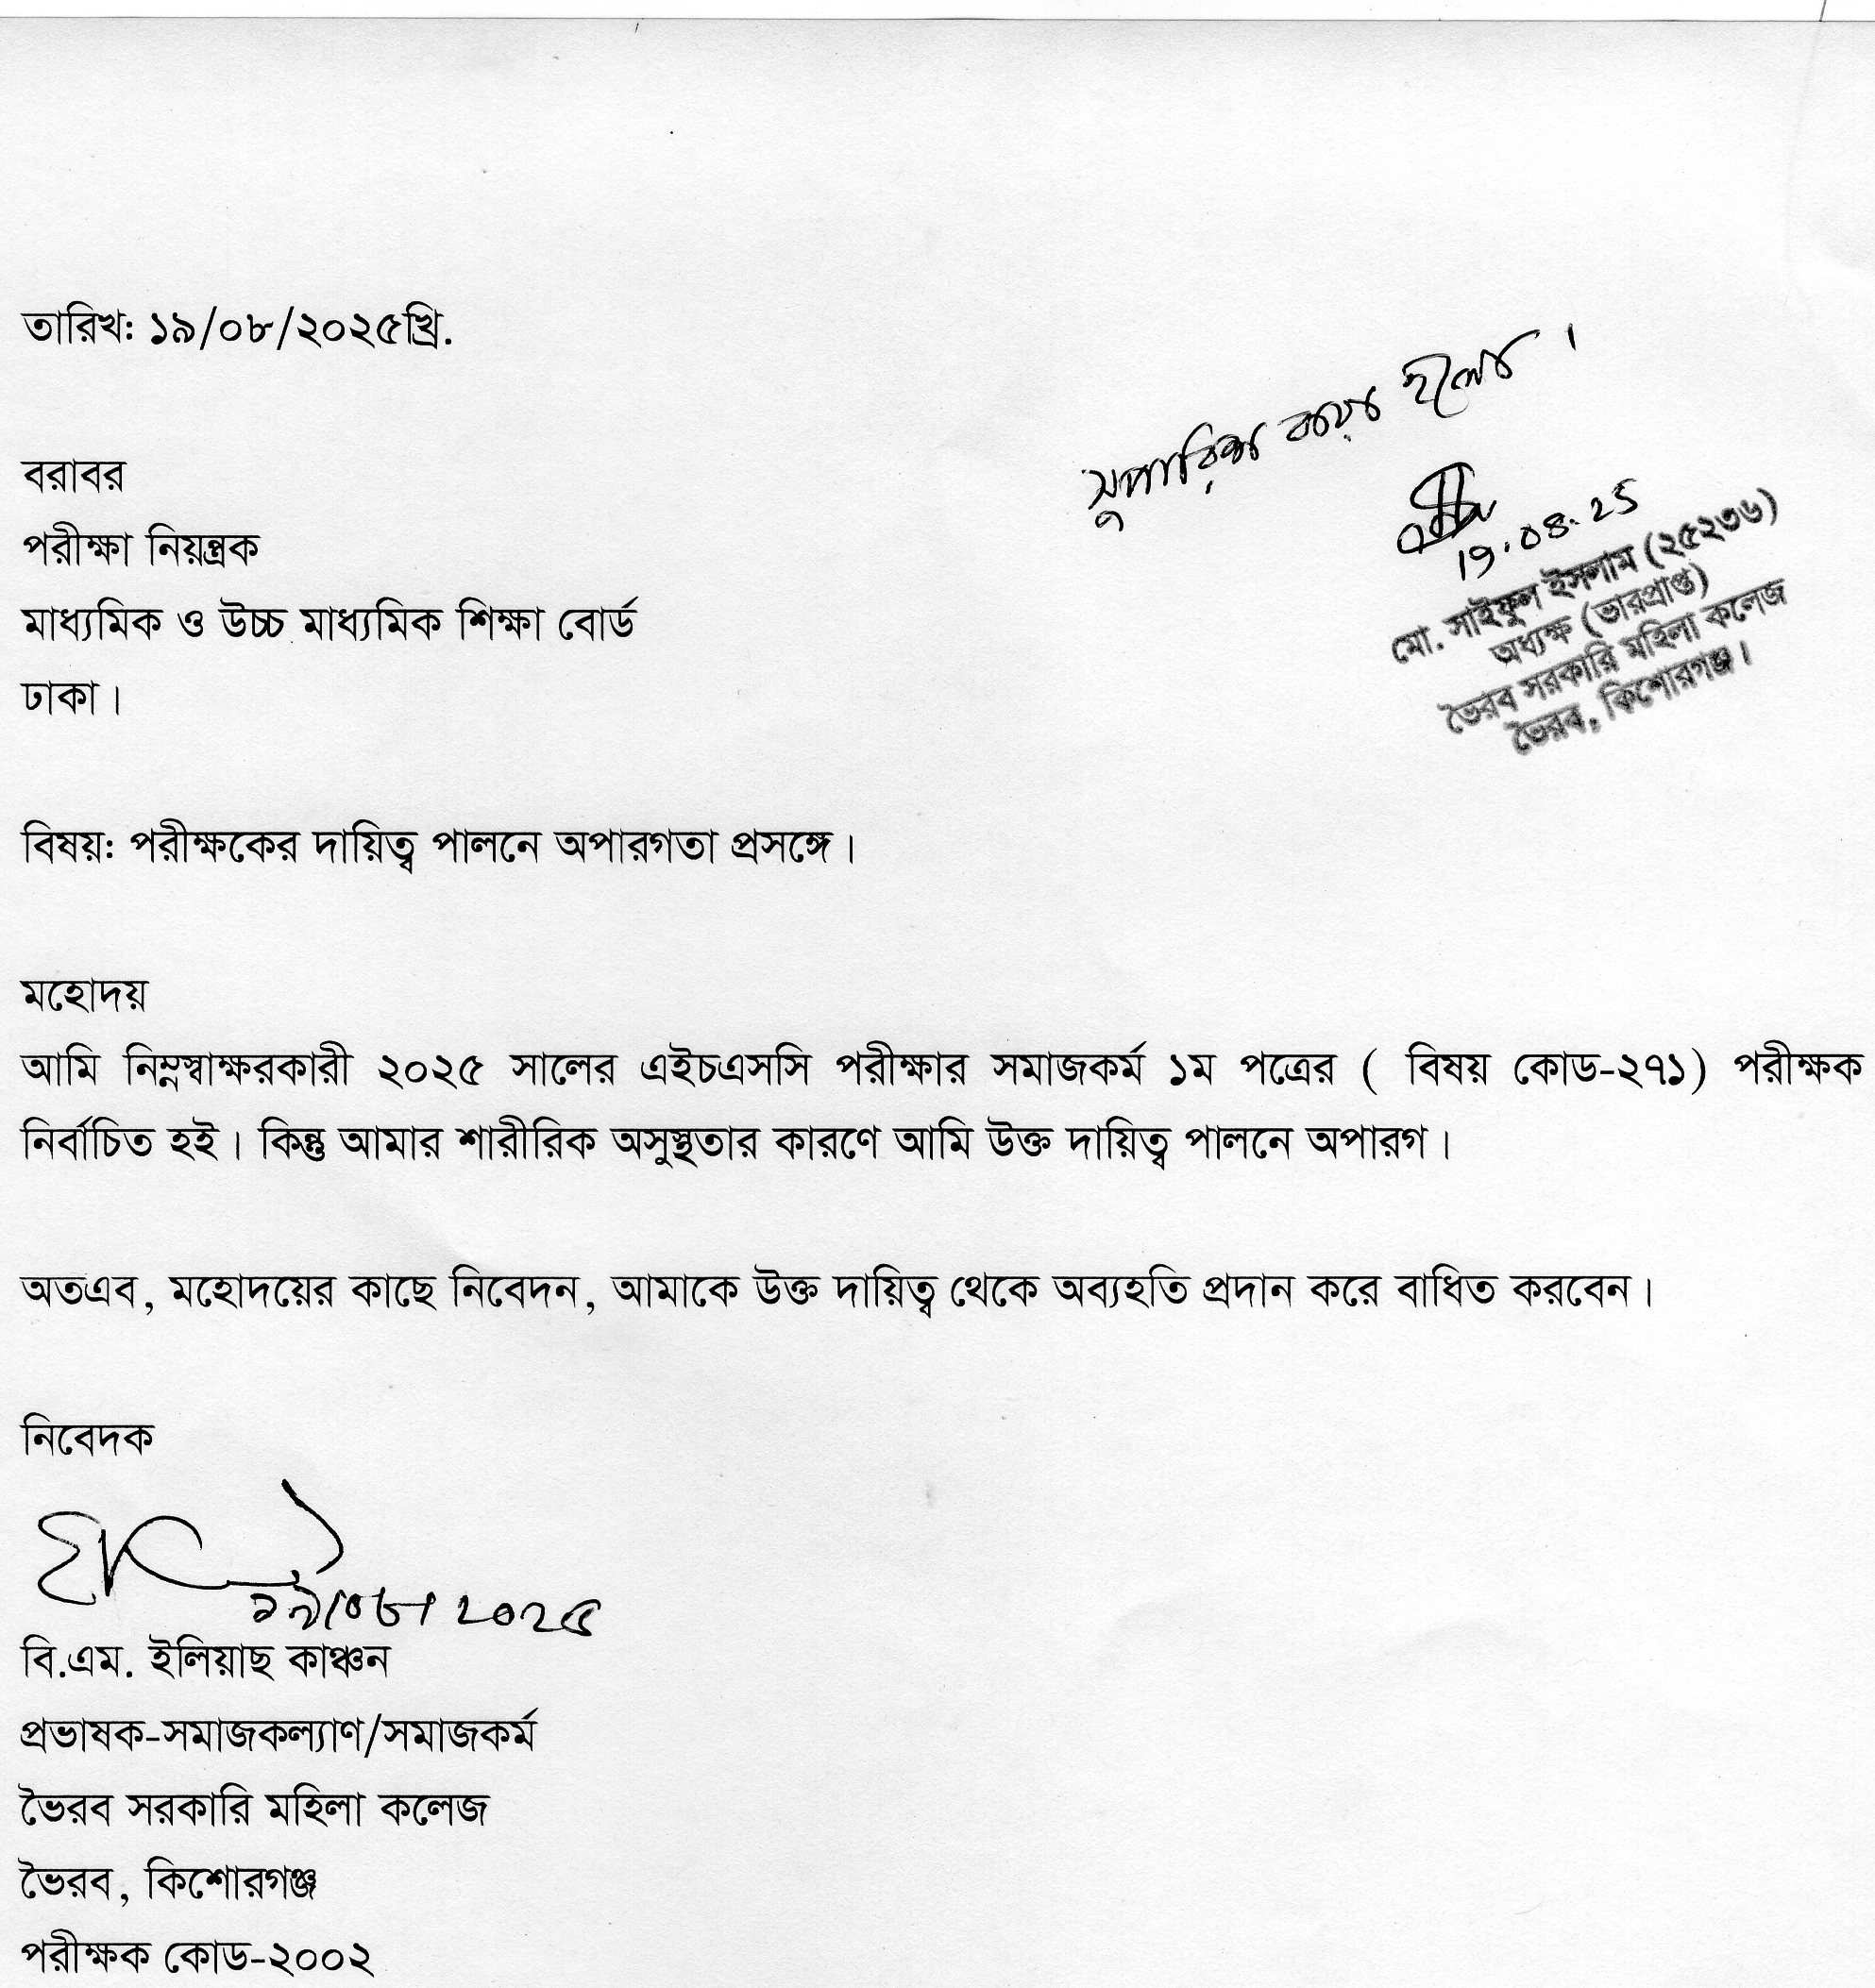 তারিখ: ১৯/০৮/২০২৫খ্রি.
সুপারিশ করা হলো।
19.08.25
মো. সাইফুল ইসলাম (২৫২৩৬)
অধ্যক্ষ (ভারপ্রাপ্ত)
ভৈরব সরকারি মহিলা কলেজ
ভৈরব, কিশোরগঞ্জ।
বরাবর
পরীক্ষা নিয়ন্ত্রক
মাধ্যমিক ও উচ্চ মাধ্যমিক শিক্ষা বোর্ড
ঢাকা।
বিষয়: পরীক্ষকের দায়িত্ব পালনে অপারগতা প্রসঙ্গে।
মহোদয়
আমি নিম্নস্বাক্ষরকারী ২০২৫ সালের এইচএসসি পরীক্ষার সমাজকর্ম ১ম পত্রের ( বিষয় কোড-২৭১) পরীক্ষক
নির্বাচিত হই। কিন্তু আমার শারীরিক অসুস্থতার কারণে আমি উক্ত দায়িত্ব পালনে অপারগ।
অতএব, মহোদয়ের কাছে নিবেদন, আমাকে উক্ত দায়িত্ব থেকে অব্যহতি প্রদান করে বাধিত করবেন।
নিবেদক
১৯/০৮/২০২৫
বি.এম. ইলিয়াছ কাঞ্চন
প্রভাষক-সমাজকল্যাণ/সমাজকর্ম
ভৈরব সরকারি মহিলা কলেজ
ভৈরব, কিশোরগঞ্জ
পরীক্ষক কোড-২০০২